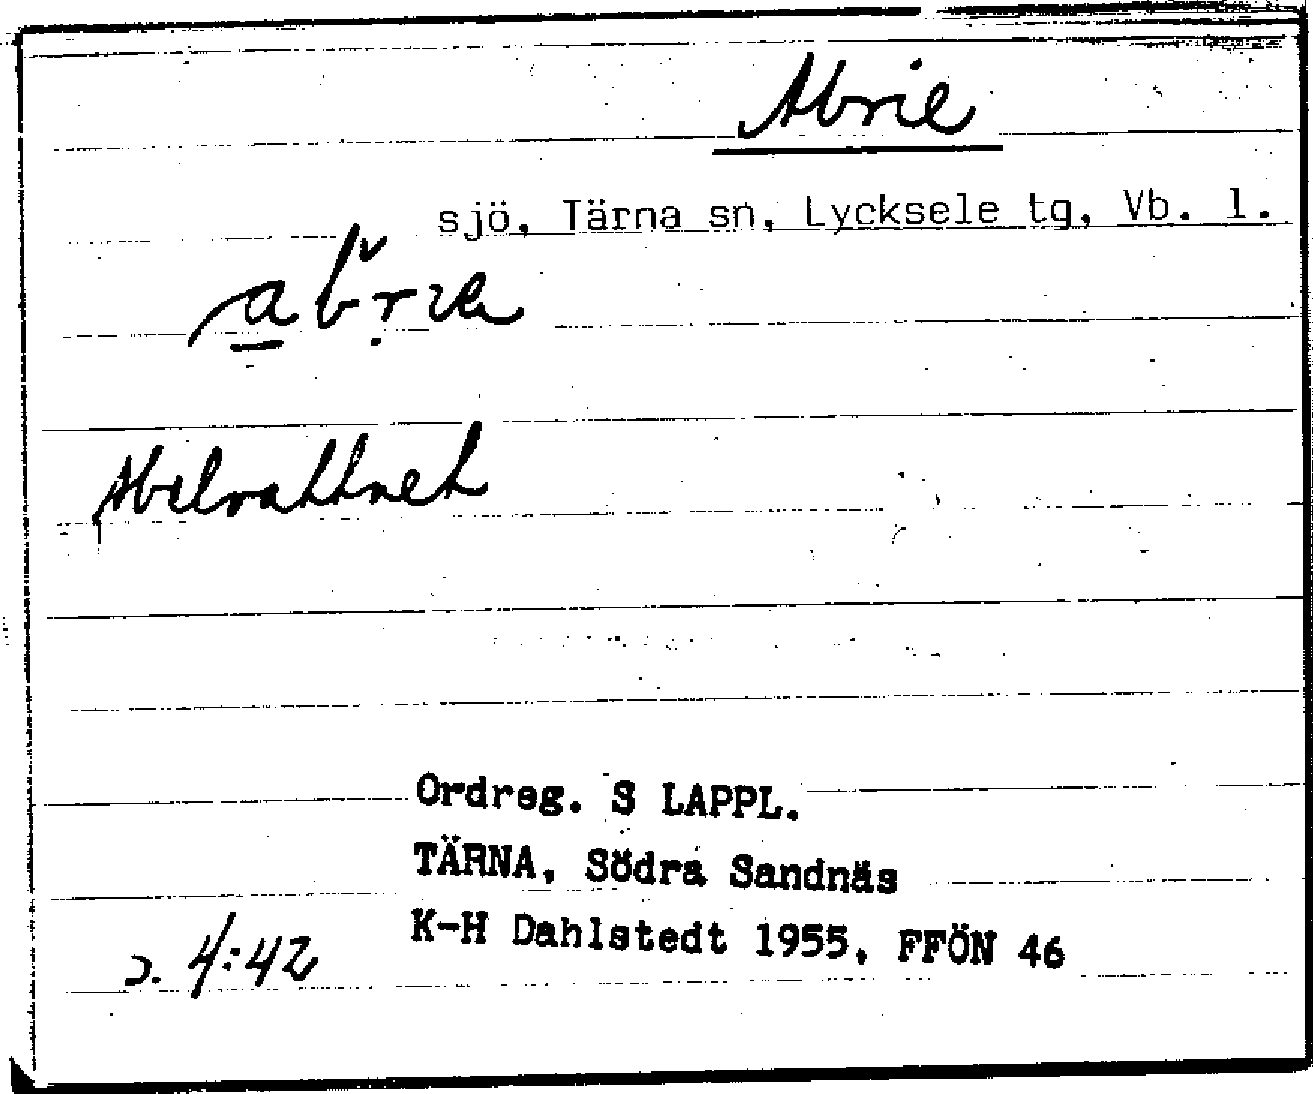 Abrie
sjö, Tärna sn, Lycksele tg, Vb. l.
Abelvattnet
Ordreg. S LAPPL.
TÄRNA, Södra Sandnäs
K-H Dahlstedt 1955, FFÖN 46
s. 4:42